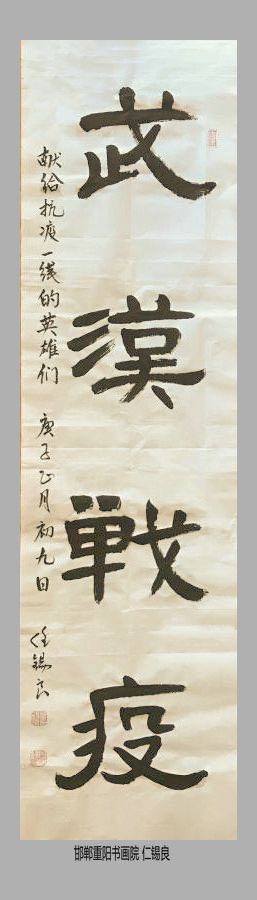 武漢戰疫
献给抗疫一线的英雄们 庚子正月初九日 任锡良
邯郸重阳书画院 仁锡良